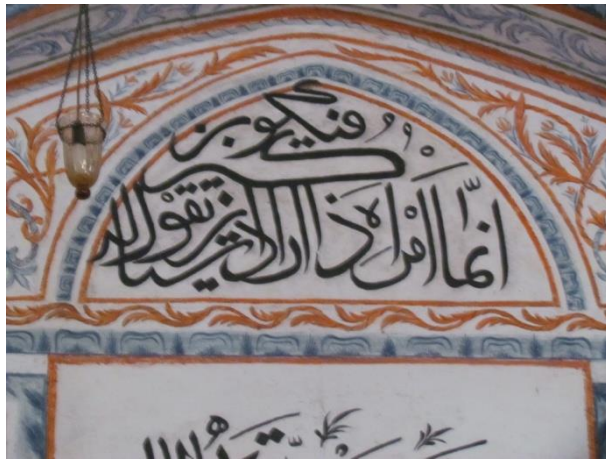 انمّا امره اذا اراد شيئا ان يقول له كن فيكون